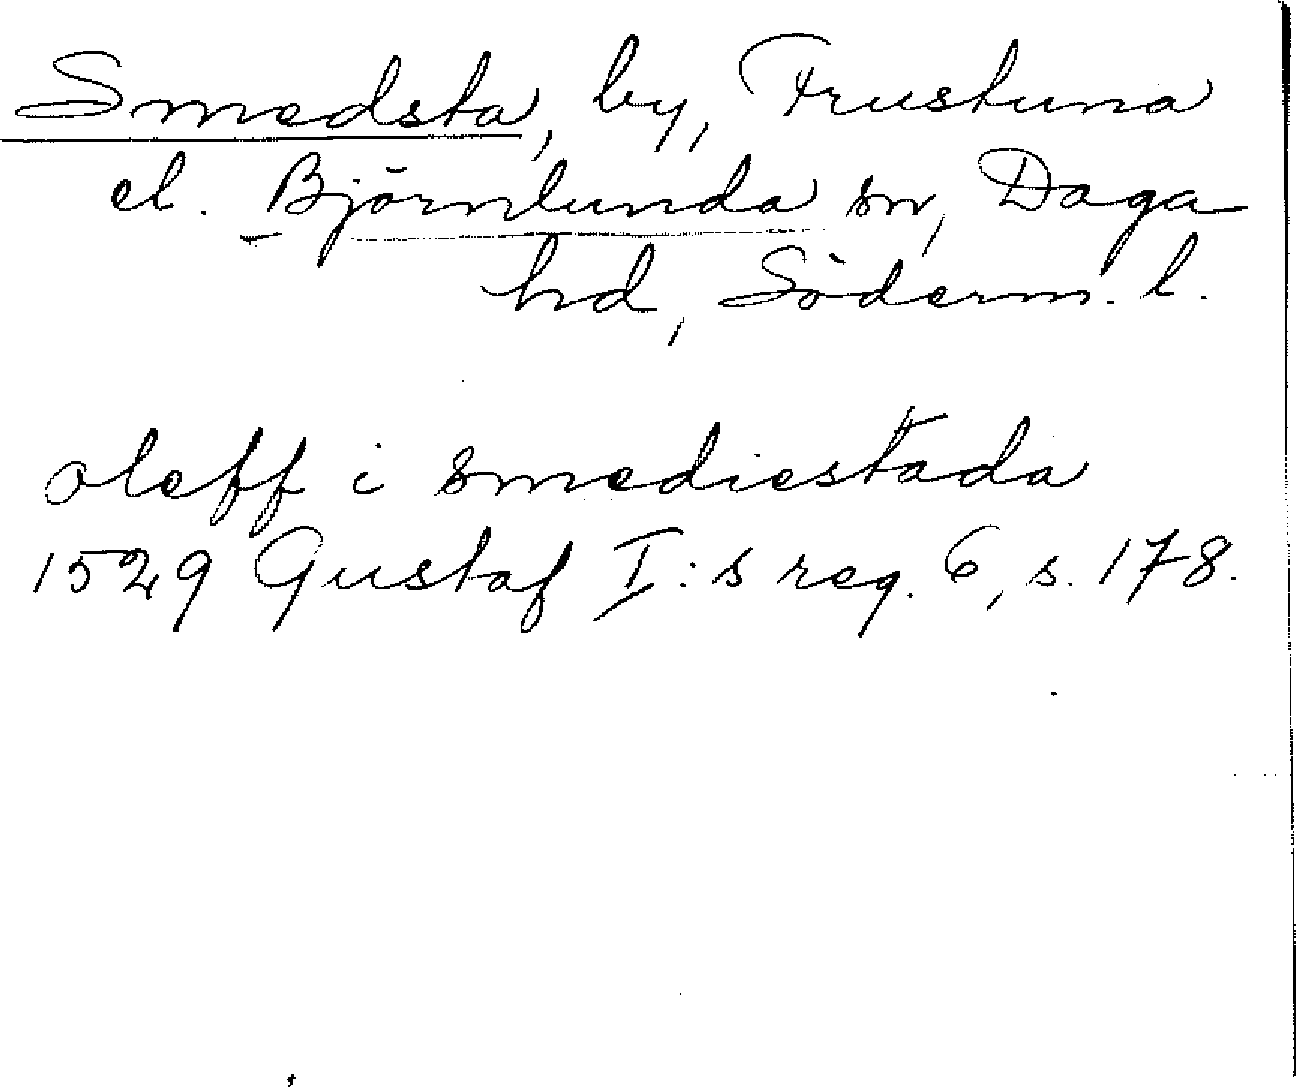 Smedsta, by, Frustuna
el. Björnlunda sn, Daga
hd, Söderm. l.
oleff i smediestada
1529 Gustaf I:s reg. 6, s. 178.